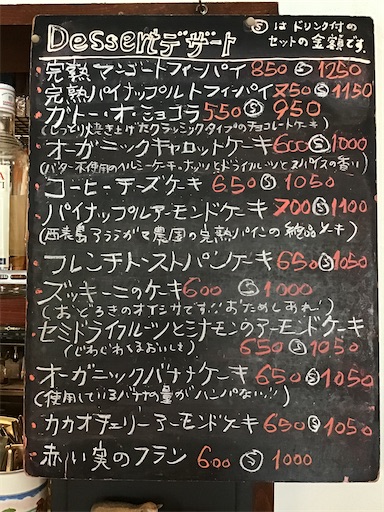 Dessert デザート
Ⓢ は ドリンク付の
セットの金額です.
・完熟マンゴートフィンパイ 850 Ⓢ 1250
・完熟パイナップルトフィンパイ 750 Ⓢ 1150
・ガトー・オ・ショコラ 550 Ⓢ 950
(しっとり焼き上げたクラッシックタイプのチョコレートケーキ)
・オーガニックキャロットケーキ 600 Ⓢ 1000
(バター不使用のヘルシーケーキ・ナッツとドライフルーツとスパイスの香い)
・コーヒーチーズケーキ 650 Ⓢ 1050
・パイナップルアーモンドケーキ 700 Ⓢ 1100
(西表島アララガマ農園の完熟パインの絶品ケーキ)
・フレンチトーストパンケーキ 650 Ⓢ 1050
・ズッキーニのケーキ 600 Ⓢ 1000
(おどろきのオイシサです!!おためしあれ!)
・セミドライフルーツとシナモンのアーモンドケーキ
(じわじわとおいしさ) 650 Ⓢ 1050
・オーガニックバナナケーキ 650 Ⓢ 1050
(使用しているバナナの量がハンパない!!)
・カカオチェリーアーモンドケーキ 650 Ⓢ 1050
・赤い実のフラン 600 Ⓢ 1000